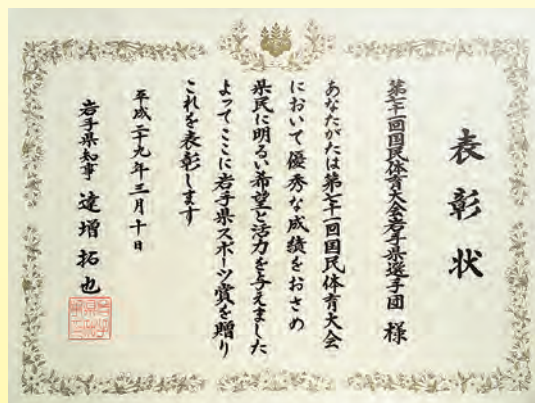 表彰状
第七十一回国民体育大会岩手県選手団 様
あなたがたは第七十一回国民体育大会
において優秀な成績をおさめ
県民に明るい希望と活力を与えました
よってここに岩手県スポーツ賞を贈り
これを表彰します
平成二十九年三月十日
岩手県知事 達増拓也